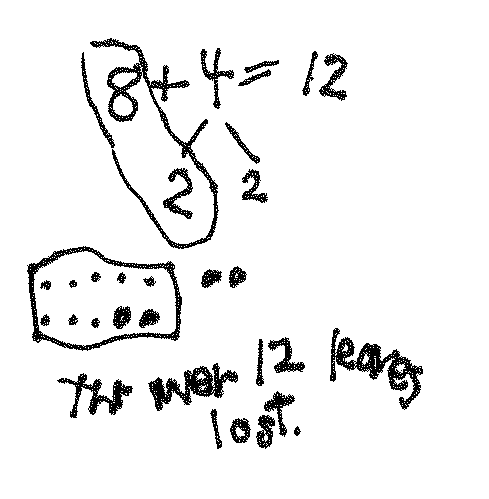 8 + 4 = 12
2 2
Thr wer 12 leaves
lost.